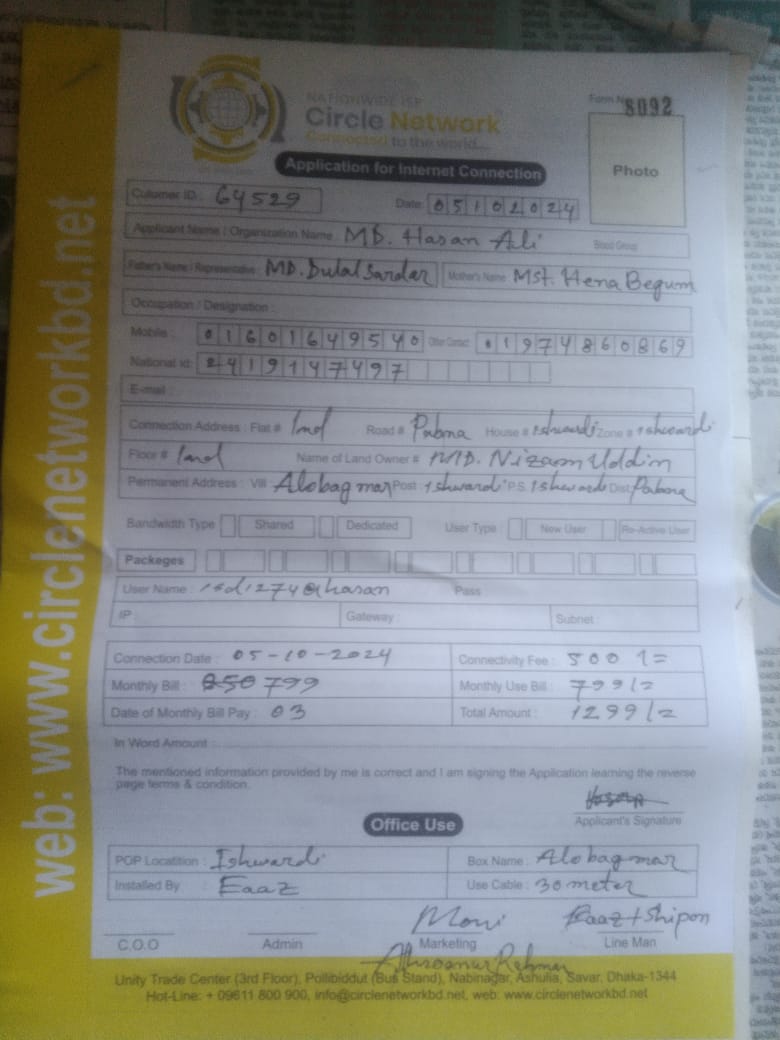 NATIONWIDE ISP
Circle Network
Connected to the world...
Form No 8092
Photo
Application for Internet Connection
Cutomer ID : 64529 Date: 05102024
Applicant Name / Organization Name : MD. Hasan Ali Blood Group
Father's Name / Representative : MD. Dulal Sardar Mother's Name : Mst. Hena Begum
Occupation / Designation :
Mobile : 01601649540 Other Contact : 01974860869
National Id: 2419147497
E-mail :
Connection Address : Flat # Road # Pabna House # Ishwardi Zone # Ishwardi
Floor # Name of Land Owner # MD. Nizam Uddin
Permanent Address : Vill Alobag mar Post Ishwardi P.S. Ishwardi Dist Pabna
Bandwidth Type Shared Dedicated User Type : New User Re-Active User
Packeges
User Name : isd1274@hasan Pass
IP : Gateway : Subnet :
Connection Date : 05-10-2024 Connectivity Fee : 500/=
Monthly Bill : 850 799 Monthly Use Bill : 799/=
Date of Monthly Bill Pay : 03 Total Amount : 1299/=
In Word Amount :
The mentioned information provided by me is correct and I am signing the Application learning the reverse
page terms & condition.
Applicant's Signature
Office Use
POP Locatition : Ishwardi Box Name : Alobag mar
Installed By : Eaaz Use Cable : 30 meter
Moni Eaaz + Shipon
C.O.O Admin Marketing Line Man
Rahman
Unity Trade Center (3rd Floor), Pollibiddut (Bus Stand), Nabinagar, Ashulia, Savar, Dhaka-1344
Hot-Line: + 09611 800 900, info@circlenetworkbd.net, web: www.circlenetworkbd.net
web: www.circlenetworkbd.net